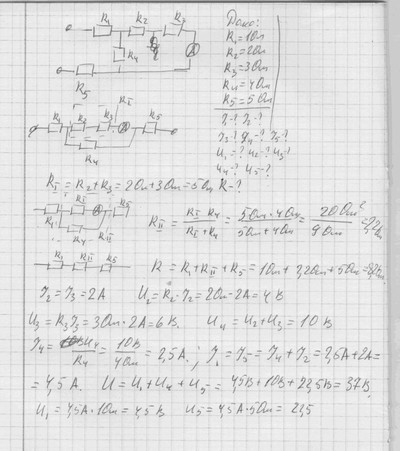 R₁ R₂ R₃
R₄
A
R₅
Дано:
R₁=1Ом
R₂=2Ом
R₃=3Ом
R₄=4Ом
R₅=5Ом
J₁-? J₂-?
J₃-? J₄-? J₅-?
U₁-? U₂-? U₃-?
U₄-? U₅-?
R-?
R_I
R₁ R₂ R₃ A R₅
R₄
R_I = R₂+R₃ = 2Ом+3Ом=5Ом
R₁ R_I A R₅
R₄ R_II
R_II = R_I·R₄/(R_I+R₄) = 5Ом·4Ом/(5Ом+4Ом) = 20Ом²/9Ом = 2,2Ом
R₁ R_II R₅
R = R₁+R_II+R₅ = 1Ом+2,2Ом+5Ом=8,2Ом
J₂=J₃=2А U₂=R₂·J₂=2Ом·2А=4В
U₃=R₃J₃=3Ом·2А=6В. U₄=U₂+U₃=10В
J₄=U₄/R₄=10В/4Ом=2,5А.; J₁=J₅=J₄+J₂=2,5А+2А=
=4,5А. U=U₁+U₄+U₅=4,5В+10В+22,5В=37В.
U₁=4,5А·1Ом=4,5В U₅=4,5А·5Ом=22,5